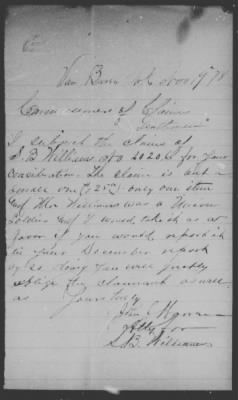 Van Buren Ark Nov 19 78
Commissioners of Claims
Gentlemen
I submit the claim of
S. B. Williams No 2020 for your
consideration. The claim is but a
small one only one item
and Mr Williams was a Union
Soldier and I would take it as a
favor if you would report it
in your December report
by so doing you will greatly
oblige the claimant as well
as Yours truly
John
Atty for
S. B. Williams